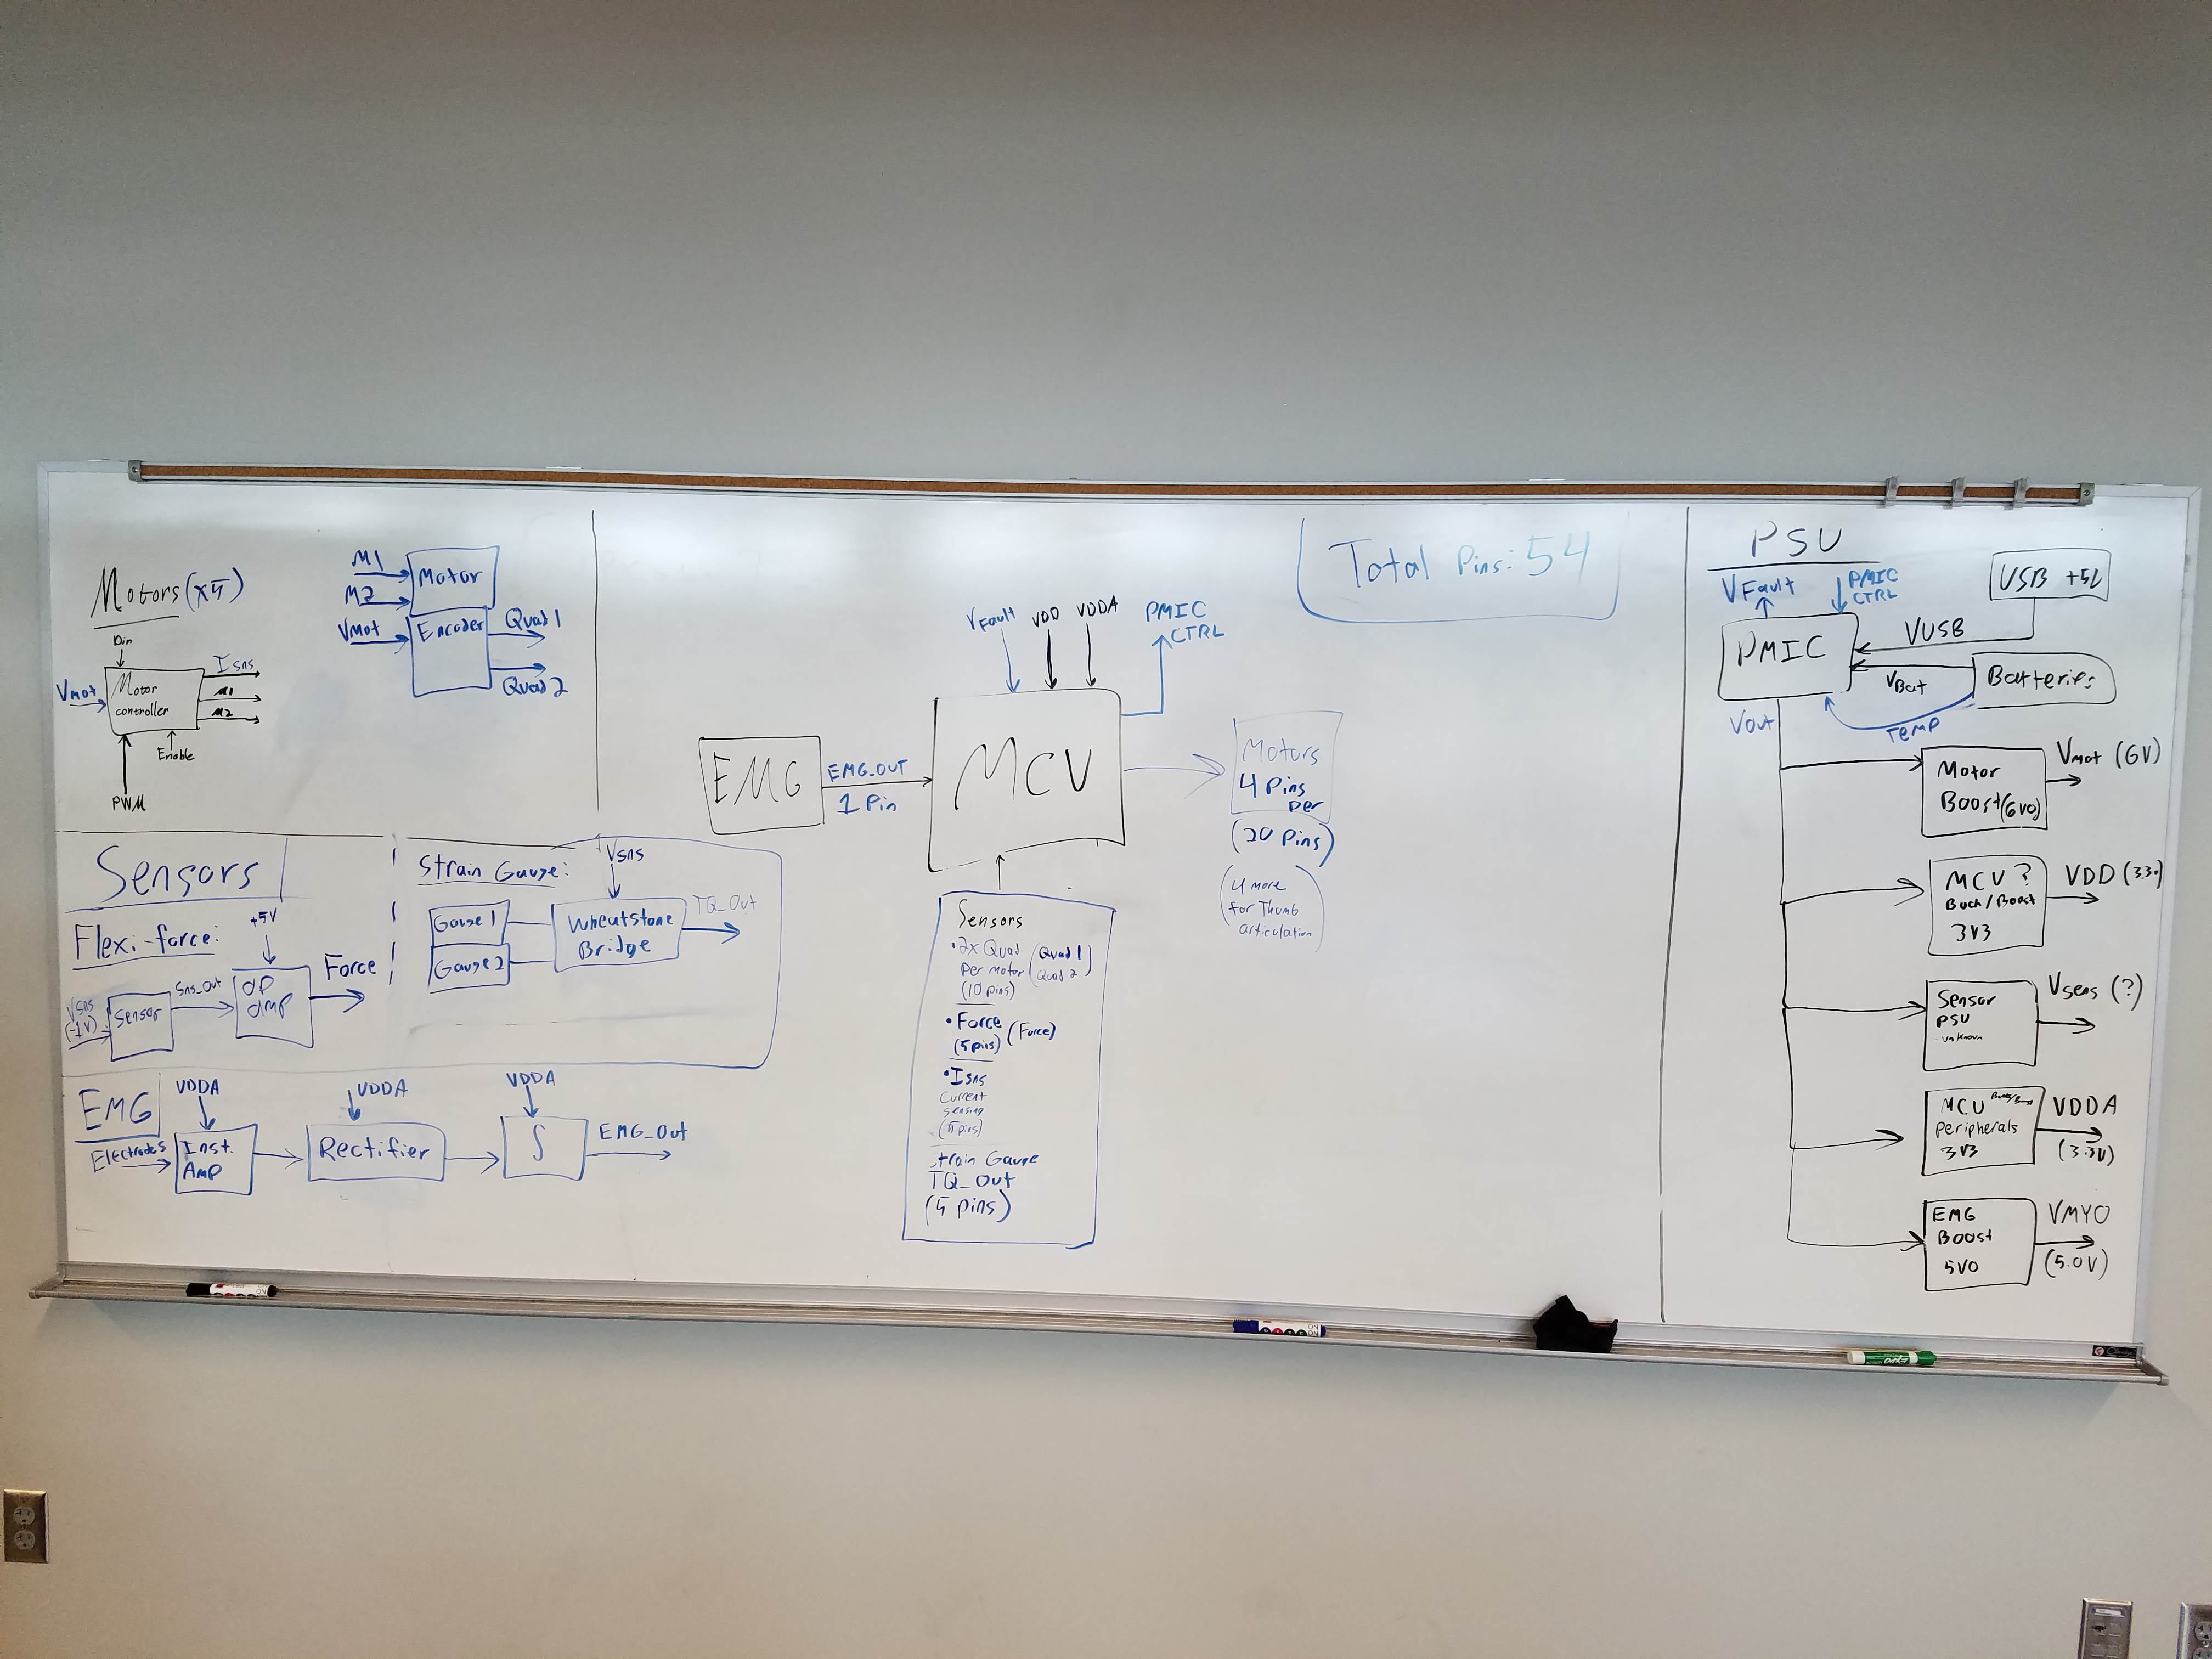 Motors (x5)
Din
Vmot
Motor
controller
Isns
M1
M2
Enable
PWM
M1
M2
Vmot
Motor
Encoder
Quad 1
Quad 2
Sensors
Flexi-force:
+5V
Vsns
(-1V)
Sensor
Sns_Out
OP
Amp
Force
Strain Gauge:
Vsns
Gauge 1
Gauge 2
Wheatstone
Bridge
TQ_Out
EMG
Electrodes
VDDA
Inst.
Amp
VDDA
Rectifier
VDDA
∫
EMG_Out
Total Pins: 54
VFault
VDD
VDDA
PMIC
CTRL
EMG
EMG_OUT
1 Pin
MCU
Motors
4 Pins
per
(20 Pins)
(4 more
for Thumb
articulation)
Sensors
• 2x Quad (Quad 1
Per motor Quad 2)
(10 pins)
• Force (Force)
(5 pins)
• Isns
Current
sensing
(5 pins)
Strain Gauge
TQ_Out
(5 pins)
PSU
VFault
PMIC
CTRL
USB +5V
PMIC
VUSB
VBat
Batteries
Temp
Vout
Motor
Boost (6V0)
Vmot (6V)
MCU?
Buck/Boost
3V3
VDD (3.3v)
Sensor
PSU
-unknown
Vsens (?)
MCU Buck/Boost
Peripherals
3V3
VDDA
(3.3V)
EMG
Boost
5V0
VMYO
(5.0V)
ON
ON
EXPO